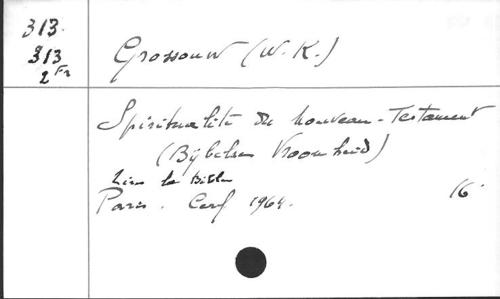 313.
313
2 Fr
Grossouw (W. K.)
Spiritualité du Nouveau-Testament
(Bijbelse Vroomheid)
Lire la Bible
Paris. Cerf 1964.
16